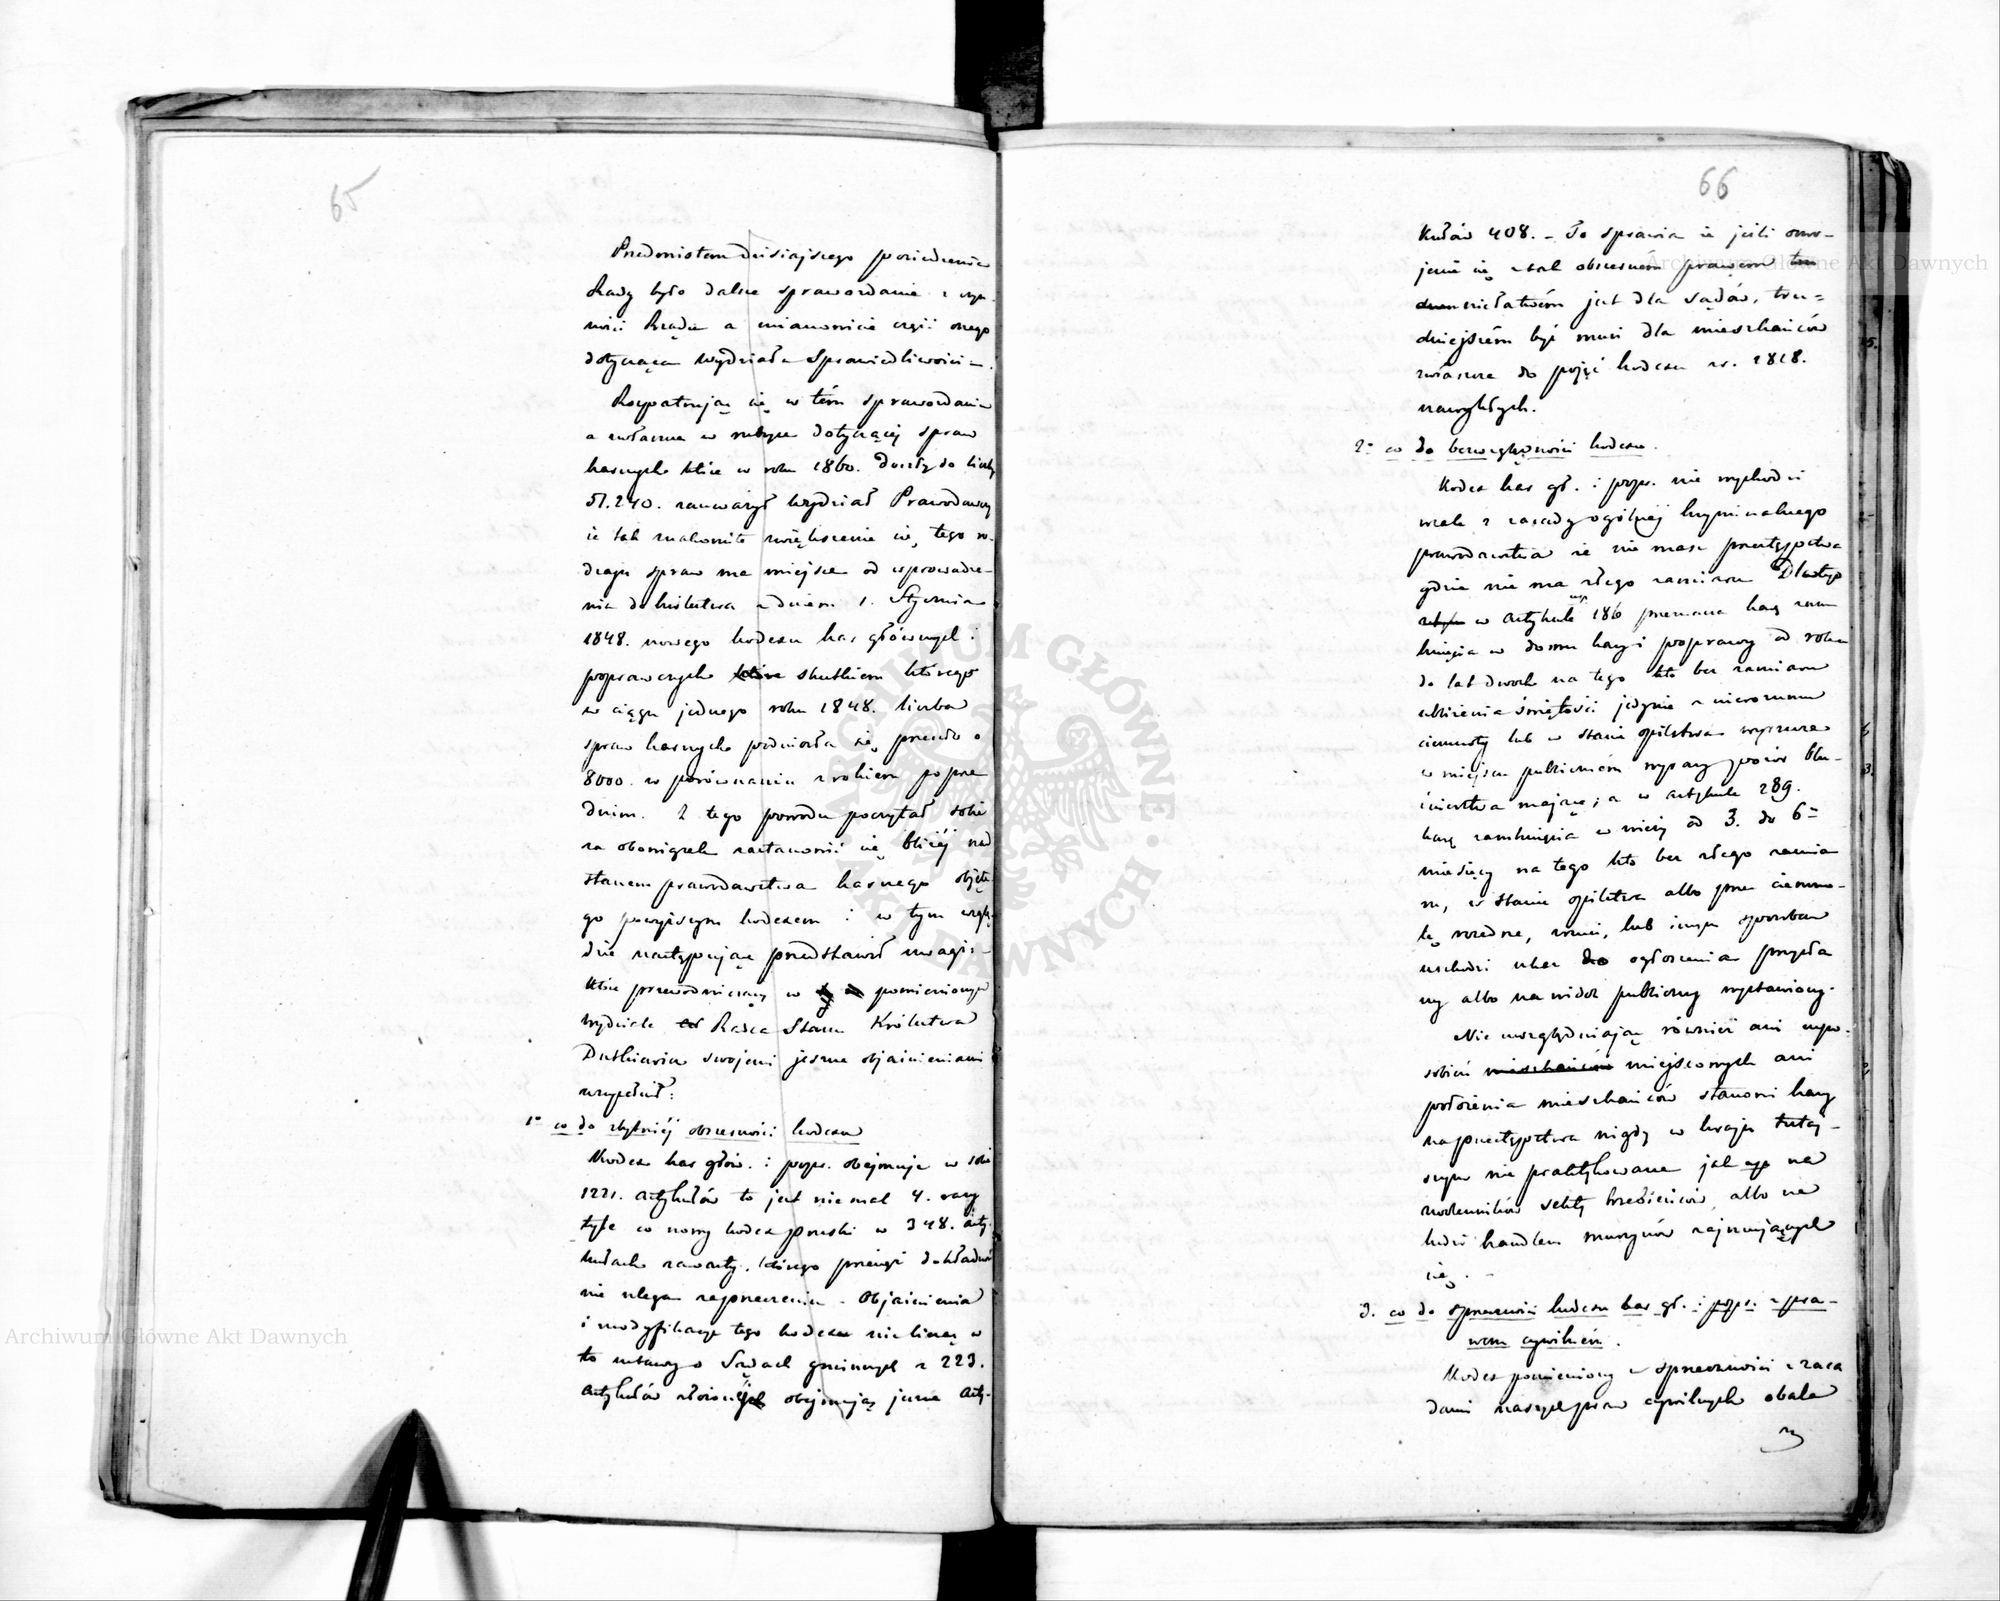 65
Przedmiotem dzisiajszego posiedzenia
Rady było dalsze sprawozdanie z czyn-
ności Rządu a mianowicie części onego
dotycząca Wydziału Sprawiedliwości.
Rozpatrując się w tém sprawozdaniu
a zwłaszcza w rubryce dotyczącej spraw
karnych które w roku 1860. doszły do liczby
51.240. zauważył Wydział Prawodawczy
iż tak znakomite zwiększenie się tego ro-
dzaju spraw ma miejsce od wprowadze-
nia do Królestwa z dniem 1. Stycznia
1848. nowego kodexu kar głównych i
poprawczych które skutkiem którego
w ciągu jednego roku 1848. liczba
spraw karnych podniosła się przeszło o
8000. w porównaniu z rokiem poprze
dnim. Z tego powodu poczytał sobie
za obowiązek zastanowić się bliżej nad
stanem prawodawstwa karnego objęte-
go powyższym kodexem i w tym wzglę-
dzie następujące przedstawił uwagi:
które przewodniczący w pomienionym
wydziale Radca Stanu Królestwa
Dutkiewicz swojemi jeszcze objaśnieniami
uzupełnił:
1° co do zbytniéj obszerności kodexu
Kodex kar głów. i popr. obejmuje w sobie
1221. artykułów to jest niemal 4. razy
tyle co nowy kodex pruski w 348. arty-
kułach zawarty, którego przecież dokładność
nie ulega zaprzeczeniu. Objaśnienia
i modyfikacye tego kodexu nie licząc w
to ustawy o Sądach gminnych z 223.
artykułów złożonéj obejmują jeszcze arty-
66
kułów 408. - To sprawia iż jeśli oswo-
jenie się z tak obszernem prawem
niełatwém jest dla Sądów, tru-
dniejszém być musi dla mieszkańców
zwłaszcza do pojęć kodexu z r. 1818.
nawykłych.
2° co do bezwzględności kodexu.
Kodex kar gł. i popr. nie wychodzi
wcale z zasady ogólnéj kryminalnego
prawodawstwa że nie masz przestępstwa
gdzie nie ma złego zamiaru Dlatego
np.
w artykule 186 przeznacza karę zam
knięcia w domu kary i poprawy od roku
do lat dwóch na tego kto bez zamiaru
ubliżenia świętości jedynie z nierozumu
ciemnoty lub w stanie opilstwa wyrzecze
w miejscu publiczném wyrazy pozór blu-
źnierstwa mające; a w artykule 289.
karę zamknięcia w wieży od 3. do 6
miesięcy na tego kto bez złego zamia
ru, w stanie opilstwa albo przez ciemno-
tę rozedrze, zrzuci, lub innym sposobem
uszkodzi ukaz do ogłoszenia przysła
ny albo na widok publiczny wystawiony.
Nie uwzględniając również ani uspo-
sobień mieszkańców miejscowych ani
położenia mieszkańców stanowi kary
na przestępstwa nigdy w kraju tutej-
szym nie praktykowane jak na
zwolenników sekty trzebieńców, albo na
ludzi handlem murzynów zajmujących
się. -
3. co do sprzeczności kodexu kar gł. i popr. z pra-
wem cywilném.
Kodex pomieniony w sprzeczności z zasa
dami naszych praw cywilnych obala